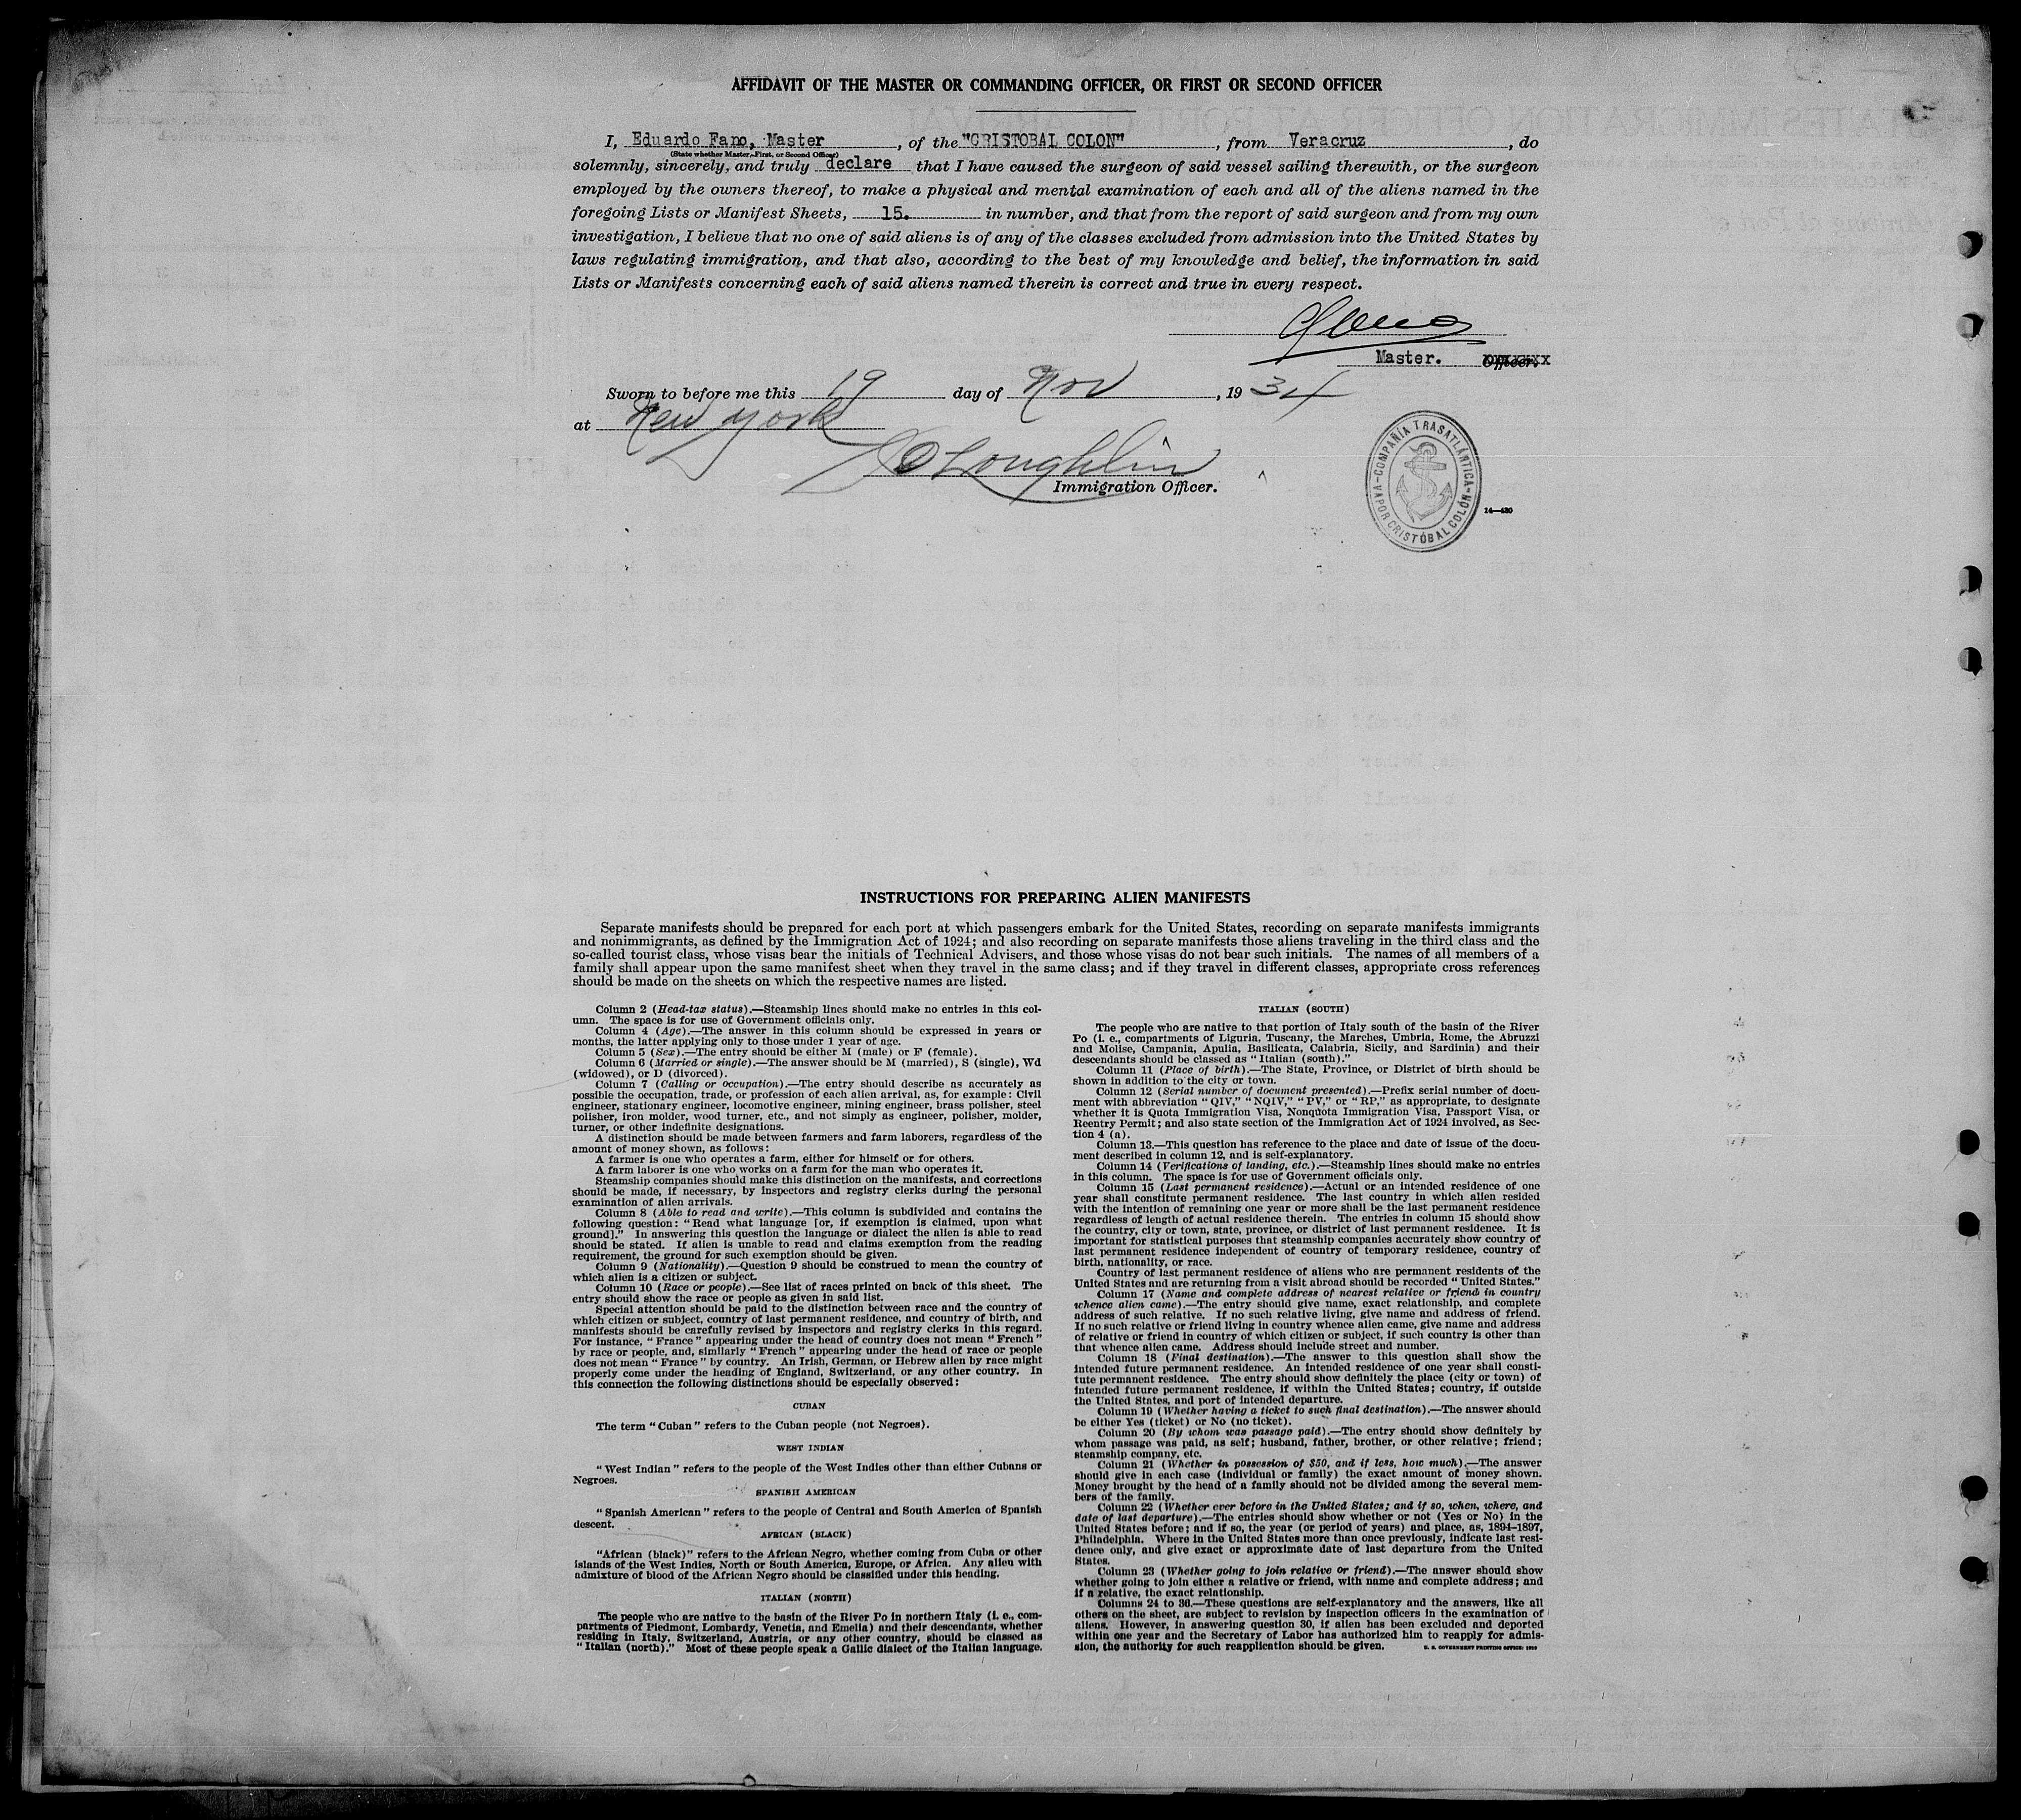 AFFIDAVIT OF THE MASTER OR COMMANDING OFFICER, OR FIRST OR SECOND OFFICER
I, Eduardo Fano, Master, of the "CRISTOBAL COLON", from Veracruz, do
(State whether Master, First, or Second Officer)
solemnly, sincerely, and truly declare that I have caused the surgeon of said vessel sailing therewith, or the surgeon
employed by the owners thereof, to make a physical and mental examination of each and all of the aliens named in the
foregoing Lists or Manifest Sheets, 15. in number, and that from the report of said surgeon and from my own
investigation, I believe that no one of said aliens is of any of the classes excluded from admission into the United States by
laws regulating immigration, and that also, according to the best of my knowledge and belief, the information in said
Lists or Manifests concerning each of said aliens named therein is correct and true in every respect.
Master. Officer.
Sworn to before me this 19 day of Nov, 1934
at New York
O'Loughlin
Immigration Officer.
COMPAÑÍA TRASATLÁNTICA
VAPOR CRISTÓBAL COLÓN
14—430
INSTRUCTIONS FOR PREPARING ALIEN MANIFESTS
Separate manifests should be prepared for each port at which passengers embark for the United States, recording on separate manifests immigrants
and nonimmigrants, as defined by the Immigration Act of 1924; and also recording on separate manifests those aliens traveling in the third class and the
so-called tourist class, whose visas bear the initials of Technical Advisers, and those whose visas do not bear such initials. The names of all members of a
family shall appear upon the same manifest sheet when they travel in the same class; and if they travel in different classes, appropriate cross references
should be made on the sheets on which the respective names are listed.
Column 2 (Head-tax status).—Steamship lines should make no entries in this col-
umn. The space is for use of Government officials only.
Column 4 (Age).—The answer in this column should be expressed in years or
months, the latter applying only to those under 1 year of age.
Column 5 (Sex).—The entry should be either M (male) or F (female).
Column 6 (Married or single).—The answer should be M (married), S (single), Wd
(widowed), or D (divorced).
Column 7 (Calling or occupation).—The entry should describe as accurately as
possible the occupation, trade, or profession of each alien arrival, as, for example: Civil
engineer, stationary engineer, locomotive engineer, mining engineer, brass polisher, steel
polisher, iron molder, wood turner, etc., and not simply as engineer, polisher, molder,
turner, or other indefinite designations.
A distinction should be made between farmers and farm laborers, regardless of the
amount of money shown, as follows:
A farmer is one who operates a farm, either for himself or for others.
A farm laborer is one who works on a farm for the man who operates it.
Steamship companies should make this distinction on the manifests, and corrections
should be made, if necessary, by inspectors and registry clerks during the personal
examination of alien arrivals.
Column 8 (Able to read and write).—This column is subdivided and contains the
following question: "Read what language [or, if exemption is claimed, upon what
ground]." In answering this question the language or dialect the alien is able to read
should be stated. If alien is unable to read and claims exemption from the reading
requirement, the ground for such exemption should be given.
Column 9 (Nationality).—Question 9 should be construed to mean the country of
which alien is a citizen or subject.
Column 10 (Race or people).—See list of races printed on back of this sheet. The
entry should show the race or people as given in said list.
Special attention should be paid to the distinction between race and the country of
which citizen or subject, country of last permanent residence, and country of birth, and
manifests should be carefully revised by inspectors and registry clerks in this regard.
For instance, "France" appearing under the head of country does not mean "French"
by race or people, and, similarly "French" appearing under the head of race or people
does not mean "France" by country. An Irish, German, or Hebrew alien by race might
properly come under the heading of England, Switzerland, or any other country. In
this connection the following distinctions should be especially observed:
CUBAN
The term "Cuban" refers to the Cuban people (not Negroes).
WEST INDIAN
"West Indian" refers to the people of the West Indies other than either Cubans or
Negroes.
SPANISH AMERICAN
"Spanish American" refers to the people of Central and South America of Spanish
descent.
AFRICAN (BLACK)
"African (black)" refers to the African Negro, whether coming from Cuba or other
islands of the West Indies, North or South America, Europe, or Africa. Any alien with
admixture of blood of the African Negro should be classified under this heading.
ITALIAN (NORTH)
The people who are native to the basin of the River Po in northern Italy (i. e., com-
partments of Piedmont, Lombardy, Venetia, and Emelia) and their descendants, whether
residing in Italy, Switzerland, Austria, or any other country, should be classed as
"Italian (north)." Most of these people speak a Gallic dialect of the Italian language.
ITALIAN (SOUTH)
The people who are native to that portion of Italy south of the basin of the River
Po (i. e., compartments of Liguria, Tuscany, the Marches, Umbria, Rome, the Abruzzi
and Molise, Campania, Apulia, Basilicata, Calabria, Sicily, and Sardinia) and their
descendants should be classed as "Italian (south)."
Column 11 (Place of birth).—The State, Province, or District of birth should be
shown in addition to the city or town.
Column 12 (Serial number of document presented).—Prefix serial number of docu-
ment with abbreviation "QIV," "NQIV," "PV," or "RP," as appropriate, to designate
whether it is Quota Immigration Visa, Nonquota Immigration Visa, Passport Visa, or
Reentry Permit; and also state section of the Immigration Act of 1924 involved, as Sec-
tion 4 (a).
Column 13.—This question has reference to the place and date of issue of the docu-
ment described in column 12, and is self-explanatory.
Column 14 (Verifications of landing, etc.).—Steamship lines should make no entries
in this column. The space is for use of Government officials only.
Column 15 (Last permanent residence).—Actual or an intended residence of one
year shall constitute permanent residence. The last country in which alien resided
with the intention of remaining one year or more shall be the last permanent residence
regardless of length of actual residence therein. The entries in column 15 should show
the country, city or town, state, province, or district of last permanent residence. It is
important for statistical purposes that steamship companies accurately show country of
last permanent residence independent of country of temporary residence, country of
birth, nationality, or race.
Country of last permanent residence of aliens who are permanent residents of the
United States and are returning from a visit abroad should be recorded "United States."
Column 17 (Name and complete address of nearest relative or friend in country
whence alien came).—The entry should give name, exact relationship, and complete
address of such relative. If no such relative living, give name and address of friend.
If no such relative or friend living in country whence alien came, give name and address
of relative or friend in country of which citizen or subject, if such country is other than
that whence alien came. Address should include street and number.
Column 18 (Final destination).—The answer to this question shall show the
intended future permanent residence. An intended residence of one year shall consti-
tute permanent residence. The entry should show definitely the place (city or town) of
intended future permanent residence, if within the United States; country, if outside
the United States, and port of intended departure.
Column 19 (Whether having a ticket to such final destination).—The answer should
be either Yes (ticket) or No (no ticket).
Column 20 (By whom was passage paid).—The entry should show definitely by
whom passage was paid, as self; husband, father, brother, or other relative; friend;
steamship company, etc.
Column 21 (Whether in possession of $50, and if less, how much).—The answer
should give in each case (individual or family) the exact amount of money shown.
Money brought by the head of a family should not be divided among the several mem-
bers of the family.
Column 22 (Whether ever before in the United States; and if so, when, where, and
date of last departure).—The entries should show whether or not (Yes or No) in the
United States before; and if so, the year (or period of years) and place, as, 1894–1897,
Philadelphia. Where in the United States more than once previously, indicate last resi-
dence only, and give exact or approximate date of last departure from the United
States.
Column 23 (Whether going to join relative or friend).—The answer should show
whether going to join either a relative or friend, with name and complete address; and
if a relative, the exact relationship.
Columns 24 to 36.—These questions are self-explanatory and the answers, like all
others on the sheet, are subject to revision by inspection officers in the examination of
aliens. However, in answering question 30, if alien has been excluded and deported
within one year and the Secretary of Labor has authorized him to reapply for admis-
sion, the authority for such reapplication should be given.
U. S. GOVERNMENT PRINTING OFFICE